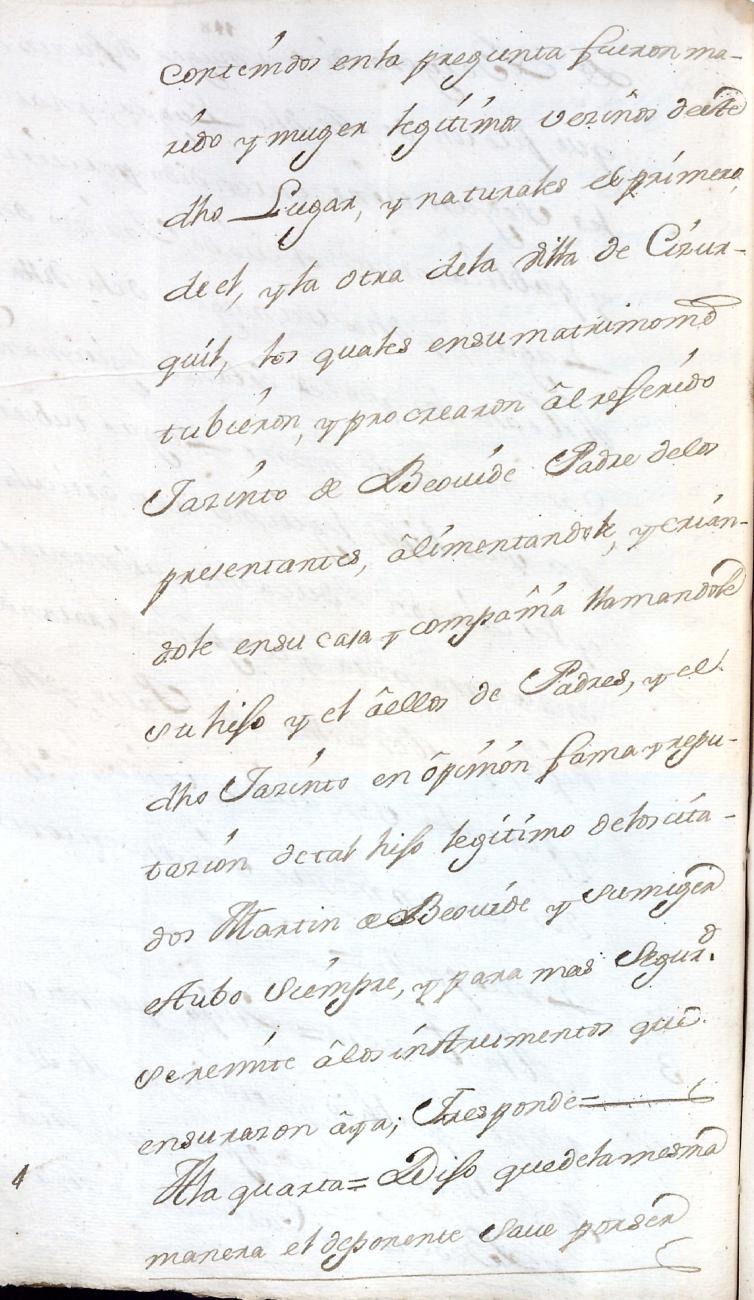 contenidos enla pregunta fueron ma-
rido y muger legitimos vezinos deeste
dho Lugar, y naturales el primero,
de el, y la otra dela Villa de Cizur-
quil, los quales ensumatrimonio
tubieron, y procrearon âl referido
Jazinto de Beovide Padre delos
presentantes, âlimentandole, y crian-
dole ensu casa y compañia llamandole
su hijo y el âellos de Padres, y el
dho Jazinto en ôpinion fama y repu-
tazion detal hijo legitimo delos cita-
dos Martin de Beovide y Sumiger
estubo Siempre, y para mas Segur.d
seremite âlos instrumentos que
ensurazon âya; Iresponde=
4 Ala quarta= Dijo quedelamesma
manera el deponente Save porser